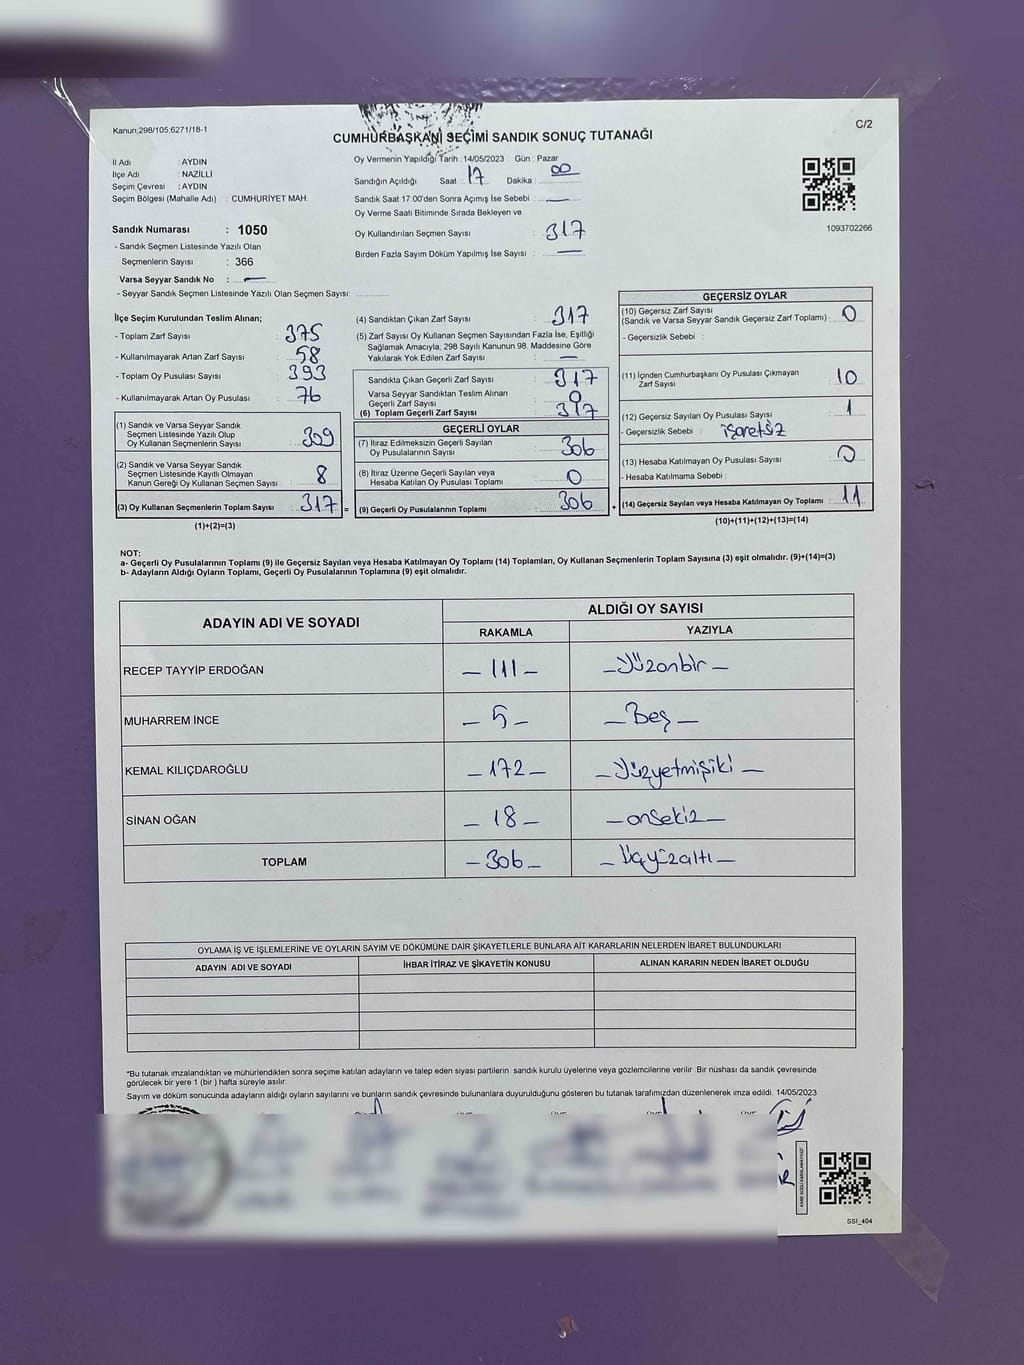 Kanun,298/105,6271/18-1
C/2
CUMHURBAŞKANİ SEÇİMİ SANDIK SONUÇ TUTANAĞI
İl Adı : AYDIN
İlçe Adı : NAZİLLİ
Seçim Çevresi : AYDIN
Seçim Bölgesi (Mahalle Adı) : CUMHURİYET MAH.
Sandık Numarası : 1050
- Sandık Seçmen Listesinde Yazılı Olan
Seçmenlerin Sayısı : 366
Varsa Seyyar Sandık No : —
- Seyyar Sandık Seçmen Listesinde Yazılı Olan Seçmen Sayısı:
Oy Vermenin Yapıldığı Tarih : 14/05/2023 Gün : Pazar
Sandığın Açıldığı Saat : 17 Dakika : 00
Sandık Saat 17:00'den Sonra Açımış İse Sebebi : —
Oy Verme Saati Bitiminde Sırada Bekleyen ve
Oy Kullandırılan Seçmen Sayısı : 317
Birden Fazla Sayım Döküm Yapılmış İse Sayısı : —
1093702266
İlçe Seçim Kurulundan Teslim Alınan;
- Toplam Zarf Sayısı : 375
- Kullanılmayarak Artan Zarf Sayısı : 58
- Toplam Oy Pusulası Sayısı : 393
- Kullanılmayarak Artan Oy Pusulası : 76
(1) Sandık ve Varsa Seyyar Sandık
Seçmen Listesinde Yazılı Olup
Oy Kullanan Seçmenlerin Sayısı : 309
(2) Sandık ve Varsa Seyyar Sandık
Seçmen Listesinde Kayıtlı Olmayan
Kanun Gereği Oy Kullanan Seçmen Sayısı : 8
(3) Oy Kullanan Seçmenlerin Toplam Sayısı : 317 =
(1)+(2)=(3)
(4) Sandıktan Çıkan Zarf Sayısı : 317
(5) Zarf Sayısı Oy Kullanan Seçmen Sayısından Fazla İse, Eşitliği
Sağlamak Amacıyla, 298 Sayılı Kanunun 98. Maddesine Göre
Yakılarak Yok Edilen Zarf Sayısı : —
Sandıkta Çıkan Geçerli Zarf Sayısı : 317
Varsa Seyyar Sandıktan Teslim Alınan
Geçerli Zarf Sayısı : 0
(6) Toplam Geçerli Zarf Sayısı : 317
GEÇERLİ OYLAR
(7) İtiraz Edilmeksizin Geçerli Sayılan
Oy Pusulalarının Sayısı : 306
(8) İtiraz Üzerine Geçerli Sayılan veya
Hesaba Katılan Oy Pusulası Toplamı : 0
(9) Geçerli Oy Pusulalarının Toplamı : 306 +
GEÇERSİZ OYLAR
(10) Geçersiz Zarf Sayısı
(Sandık ve Varsa Seyyar Sandık Geçersiz Zarf Toplamı) : 0
- Geçersizlik Sebebi :
(11) İçinden Cumhurbaşkanı Oy Pusulası Çıkmayan
Zarf Sayısı : 10
(12) Geçersiz Sayılan Oy Pusulası Sayısı : 1
- Geçersizlik Sebebi : işaretsiz
(13) Hesaba Katılmayan Oy Pusulası Sayısı : 0
- Hesaba Katılmama Sebebi :
(14) Geçersiz Sayılan veya Hesaba Katılmayan Oy Toplamı : 11
(10)+(11)+(12)+(13)=(14)
NOT:
a- Geçerli Oy Pusulalarının Toplamı (9) ile Geçersiz Sayılan veya Hesaba Katılmayan Oy Toplamı (14) Toplamları, Oy Kullanan Seçmenlerin Toplam Sayısına (3) eşit olmalıdır. (9)+(14)=(3)
b- Adayların Aldığı Oyların Toplamı, Geçerli Oy Pusulalarının Toplamına (9) eşit olmalıdır.
ADAYIN ADI VE SOYADI ALDIĞI OY SAYISI
RAKAMLA YAZIYLA
RECEP TAYYİP ERDOĞAN – 111 – – Yüzonbir –
MUHARREM İNCE – 5 – – Beş –
KEMAL KILIÇDAROĞLU – 172 – – Yüzyetmişiki –
SİNAN OĞAN – 18 – – onsekiz –
TOPLAM – 306 – – Üçyüzaltı –
OYLAMA İŞ VE İŞLEMLERİNE VE OYLARIN SAYIM VE DÖKÜMÜNE DAİR ŞİKAYETLERLE BUNLARA AİT KARARLARIN NELERDEN İBARET BULUNDUKLARI
ADAYIN ADI VE SOYADI İHBAR İTİRAZ VE ŞİKAYETİN KONUSU ALINAN KARARIN NEDEN İBARET OLDUĞU
*Bu tutanak imzalandıktan ve mühürlendikten sonra seçime katılan adayların ve talep eden siyasi partilerin sandık kurulu üyelerine veya gözlemcilerine verilir. Bir nüshası da sandık çevresinde
görülecek bir yere 1 (bir ) hafta süreyle asılır.
Sayım ve döküm sonucunda adayların aldığı oyların sayılarını ve bunların sandık çevresinde bulunanlara duyurulduğunu gösteren bu tutanak tarafımızdan düzenlenerek imza edildi. 14/05/2023
SSI_404